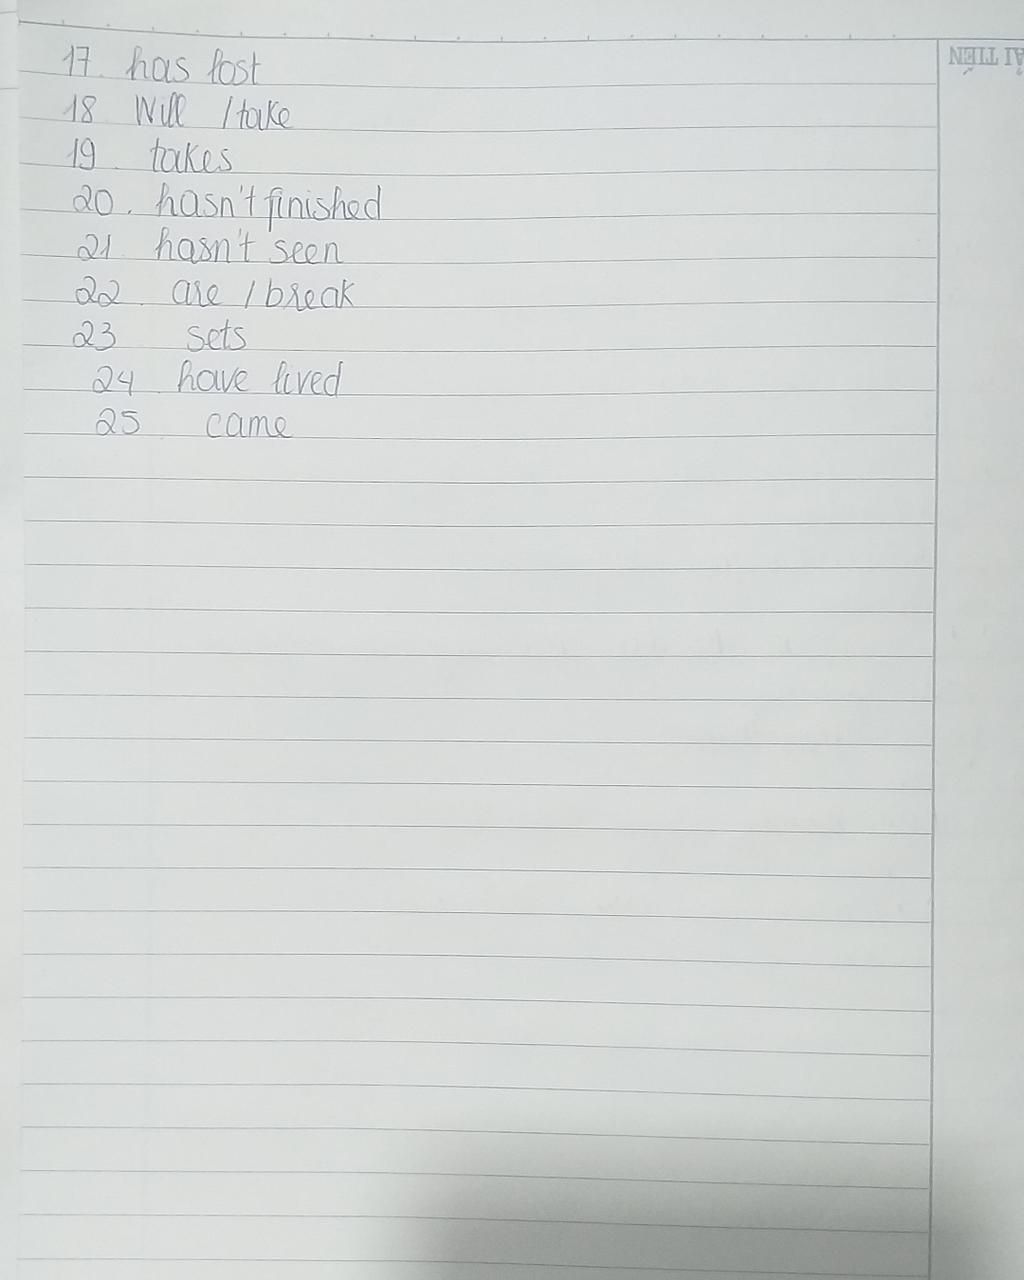 17. has lost
18 Will / take
19. takes
20. hasn't finished
21. hasn't seen
22. are / break
23 sets
24. have lived
25 came
ẢI TIẾN